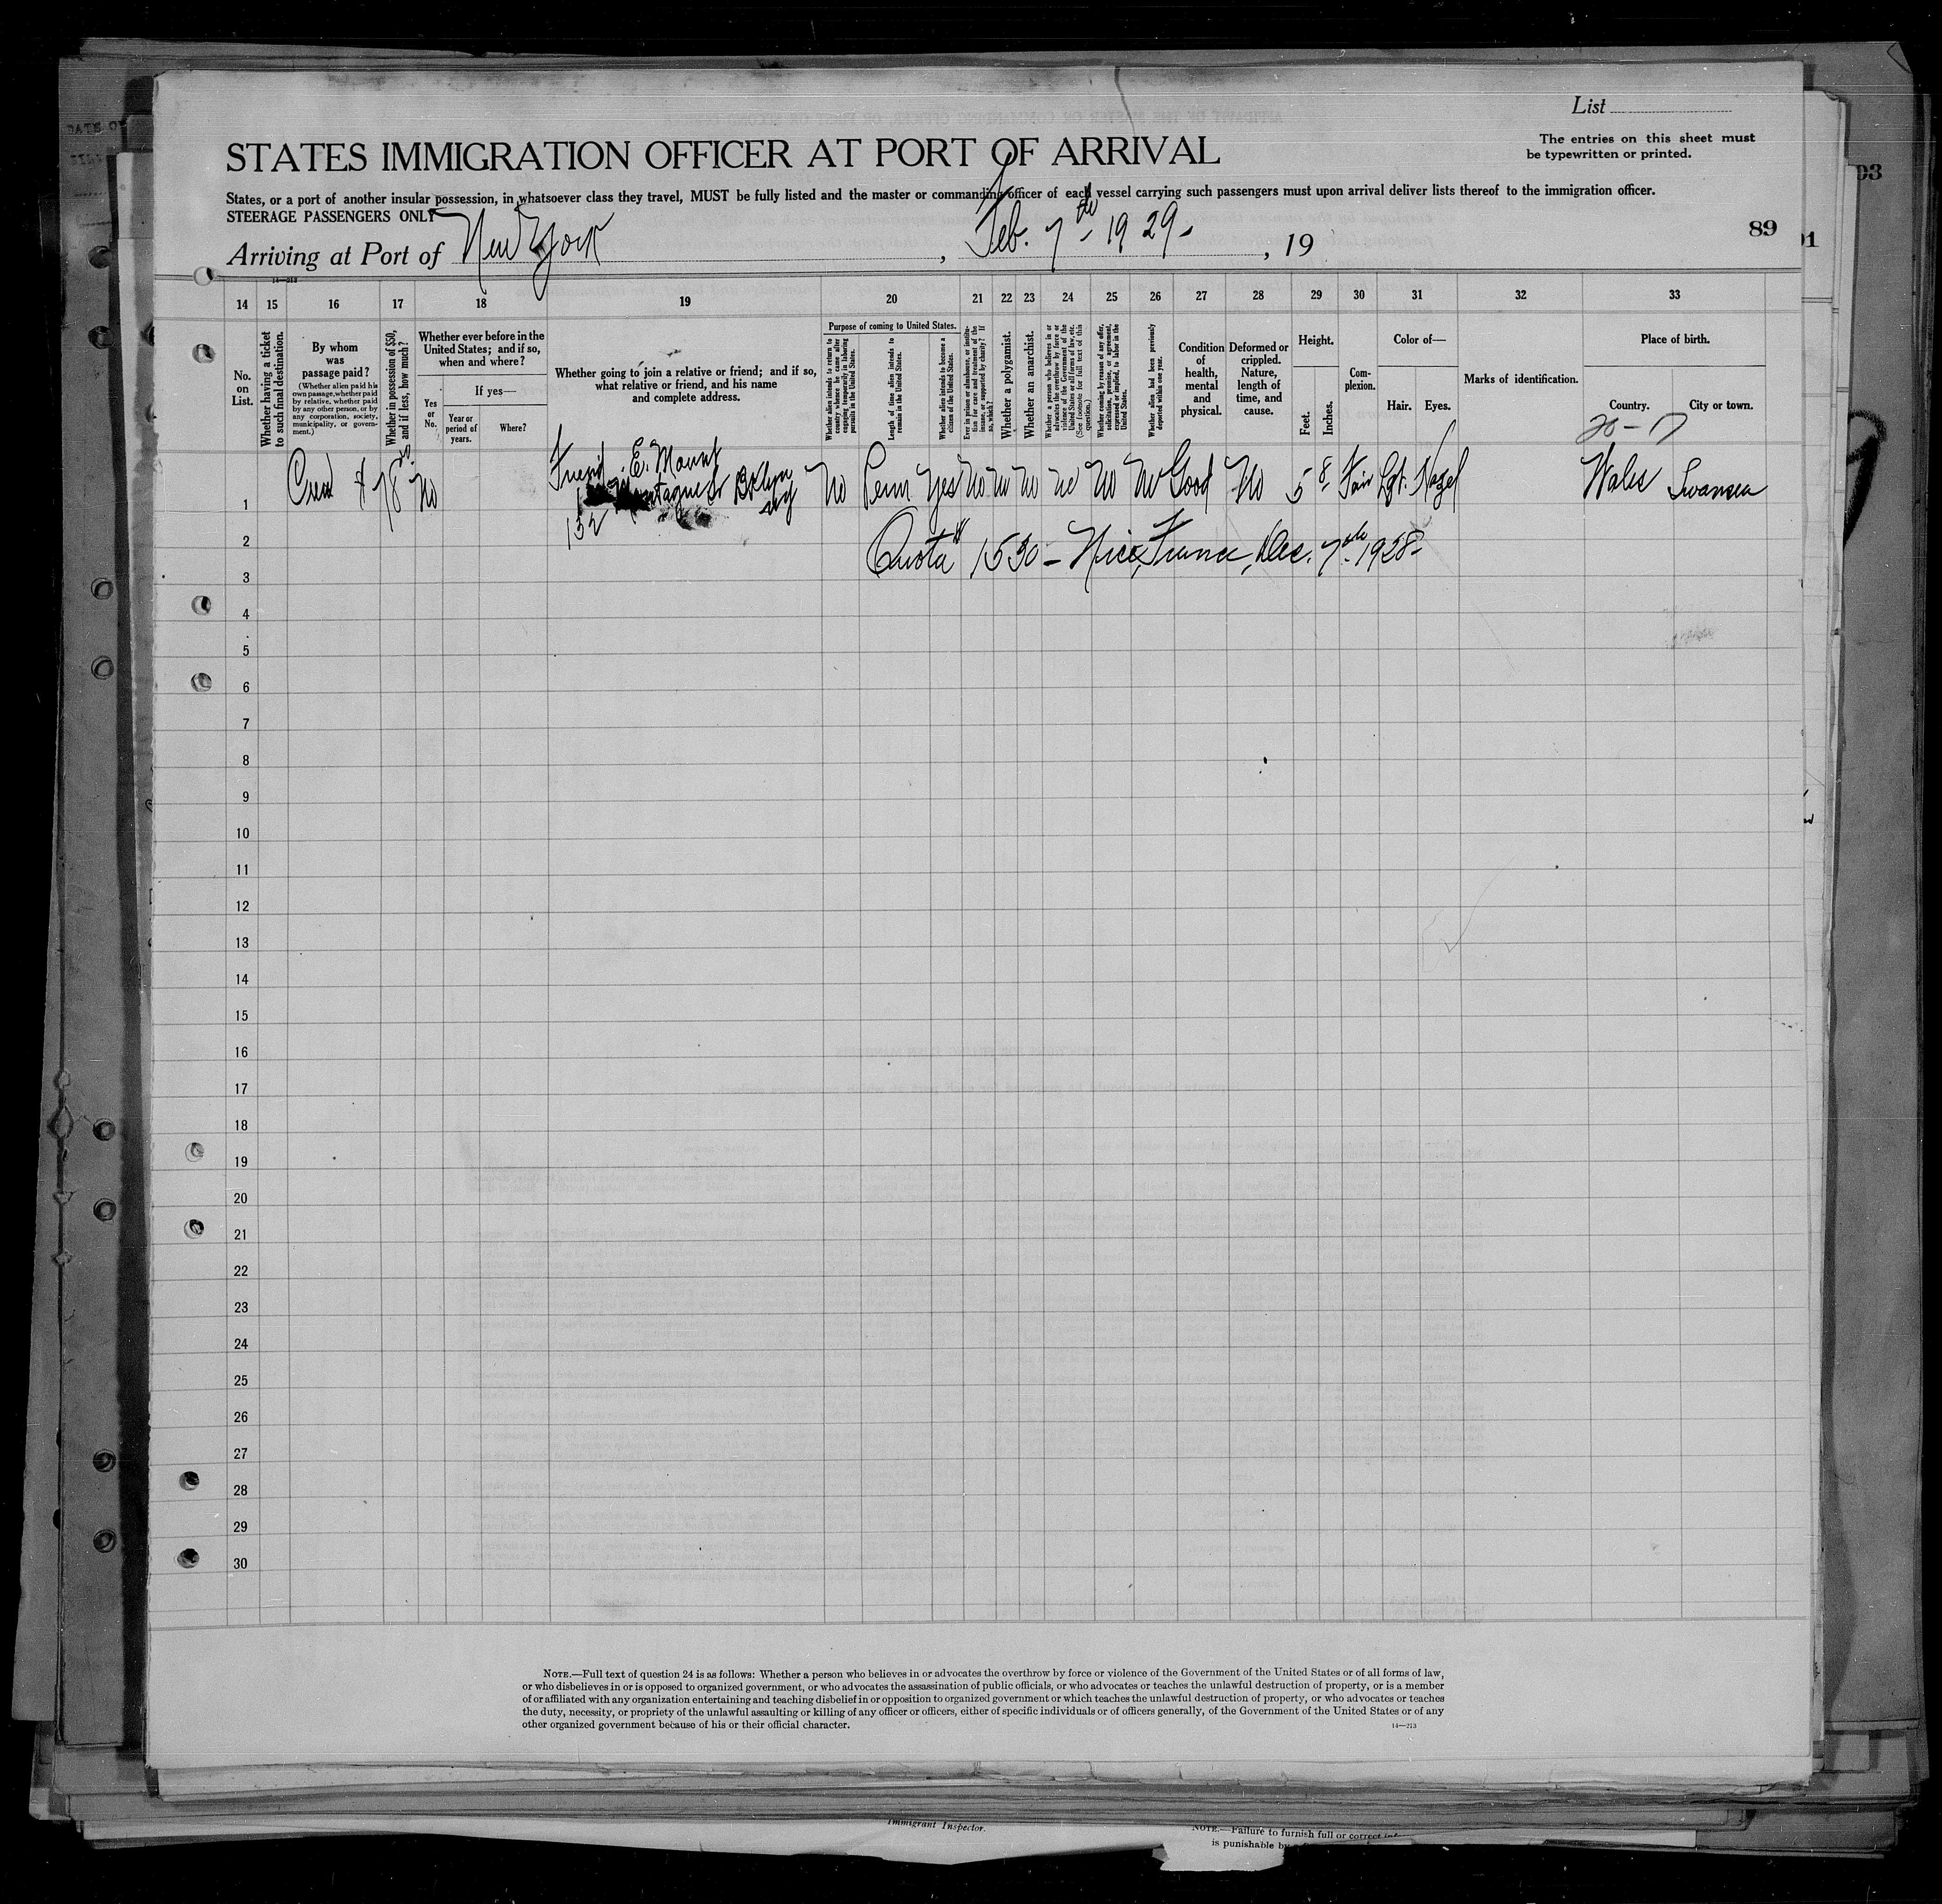 List
The entries on this sheet must
be typewritten or printed.
STATES IMMIGRATION OFFICER AT PORT OF ARRIVAL
States, or a port of another insular possession, in whatsoever class they travel, MUST be fully listed and the master or commanding officer of each vessel carrying such passengers must upon arrival deliver lists thereof to the immigration officer.
STEERAGE PASSENGERS ONLY
89
Arriving at Port of New York, Feb. 7th 1929-, 19
14—213
14 15 16 17 18 19 20 21 22 23 24 25 26 27 28 29 30 31 32 33
No. on List.
Whether having a ticket to such final destination.
By whom was passage paid?
(Whether alien paid his own passage, whether paid by relative, whether paid by any other person, or by any corporation, society, municipality, or government.)
Whether in possession of $50, and if less, how much?
Whether ever before in the United States; and if so, when and where?
Yes or No.
If yes—
Year or period of years.
Where?
Whether going to join a relative or friend; and if so, what relative or friend, and his name and complete address.
Purpose of coming to United States.
Whether alien intends to return to country whence he came after engaging temporarily in laboring pursuits in the United States.
Length of time alien intends to remain in the United States.
Whether alien intends to become a citizen of the United States.
Ever in prison or almshouse, or institution for care and treatment of the insane, or supported by charity? If so, which?
Whether a polygamist.
Whether an anarchist.
Whether a person who believes in or advocates the overthrow by force or violence of the Government of the United States or all forms of law, etc. (See footnote for full text of this question.)
Whether coming by reason of any offer, solicitation, promise, or agreement, expressed or implied, to labor in the United States.
Whether alien had been previously deported within one year.
Condition of health, mental and physical.
Deformed or crippled. Nature, length of time, and cause.
Height.
Feet. Inches.
Complexion.
Color of—
Hair. Eyes.
Marks of identification.
Place of birth.
Country. City or town.
20-17
1 $78 No Friend E. Mount
132 Montague St Bklyn NY
No Perm Yes No No No No No No Good No 5 8 Fair Lgt. Hazel Wales Swansea
2 Quota # 1530 - Nice, France, Dec. 7th 1928-
3
4
5
6
7
8
9
10
11
12
13
14
15
16
17
18
19
20
21
22
23
24
25
26
27
28
29
30
NOTE.—Full text of question 24 is as follows: Whether a person who believes in or advocates the overthrow by force or violence of the Government of the United States or of all forms of law,
or who disbelieves in or is opposed to organized government, or who advocates the assassination of public officials, or who advocates or teaches the unlawful destruction of property, or is a member
of or affiliated with any organization entertaining and teaching disbelief in or opposition to organized government or which teaches the unlawful destruction of property, or who advocates or teaches
the duty, necessity, or propriety of the unlawful assaulting or killing of any officer or officers, either of specific individuals or of officers generally, of the Government of the United States or of any
other organized government because of his or their official character.
14—213
Immigrant Inspector.
NOTE.—Failure to furnish full or correct
is punishable by